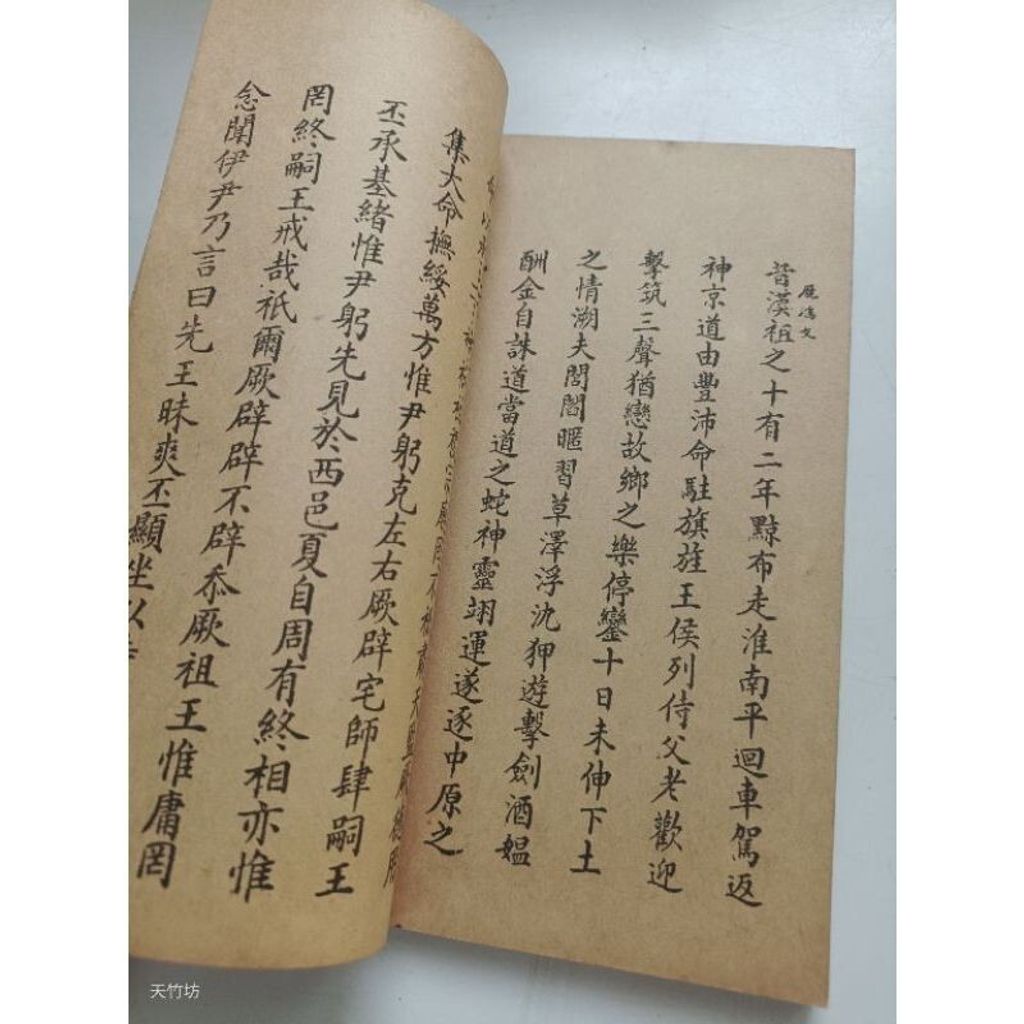 昔漢祖之十有二年黥布走淮南平迴車駕返
神京道由豐沛命駐旗旌王侯列侍父老歡迎
擊筑三聲猶戀故鄉之樂停鑾十日未伸下土
之情溯夫閭閻暱習草澤浮沈狎遊擊劍酒媼
酬金自誅道當道之蛇神靈翊運遂逐中原之
集大命撫綏萬方惟尹躬克左右厥辟宅師肆嗣王
丕承基緒惟尹躬先見於西邑夏自周有終相亦惟
罔終嗣王戒哉祇爾厥辟辟不辟忝厥祖王惟庸罔
念聞伊尹乃言曰先王昧爽丕顯坐以
天竹坊